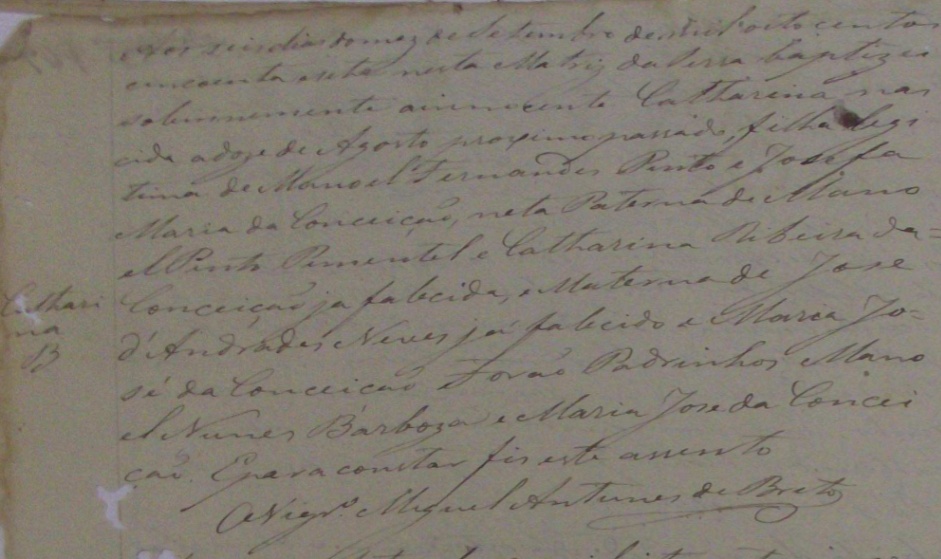 Aos seis dias do mez de Setembro de mil oito centos
cincoenta e sete nesta Matriz da Serra baptizei
solemnemente a innocente Catharina nas
cida a doze de Agosto proximo passado, filha legi
tima de Manoel Fernandes Pinto e Josefa
Maria da Conceição, neta Paterna de Mano
el Pinto Pimentel e Catharina Ribeira da=
Conceição ja falecida, e Materna de Jose
d'Andrades Neves ja falecido e Maria Jo=
sé da Conceicão Forão Padrinhos Mano
el Nunes Barboza e Maria Jose da Concei
cão. E para constar fis este assento
O Vigr.º Miguel Antunes de Brito
Cathari
na
B